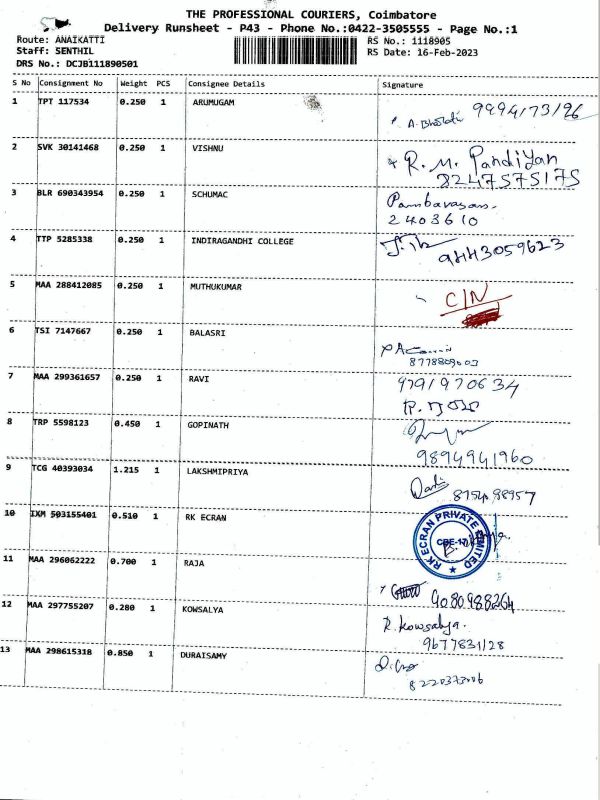 THE PROFESSIONAL COURIERS, Coimbatore
Delivery Runsheet - P43 - Phone No.:0422-3505555 - Page No.:1
Route: ANAIKATTI
Staff: SENTHIL
DRS No.: DCJB111890501
RS No.: 1118905
RS Date: 16-Feb-2023
S No Consignment No Weight PCS Consignee Details Signature
1 TPT 117534 0.250 1 ARUMUGAM
A. Bharathi 9994173126
2 SVK 30141468 0.250 1 VISHNU
R. M. Pandiyan
8247575175
3 BLR 690343954 0.250 1 SCHUMAC
2403610
4 TTP 5285338 0.250 1 INDIRAGANDHI COLLEGE
9443059623
5 MAA 288412085 0.250 1 MUTHUKUMAR
C/N
6 TSI 7147667 0.250 1 BALASRI
8778809003
7 MAA 299361657 0.250 1 RAVI
9791970634
8 TRP 5598123 0.450 1 GOPINATH
9894941960
9 TCG 40393034 1.215 1 LAKSHMIPRIYA
8754 98957
10 IXM 503155401 0.510 1 RK ECRAN
RK ECRAN PRIVATE LIMITED
CBE-17
11 MAA 296062222 0.700 1 RAJA
9080988264
12 MAA 297755207 0.280 1 KOWSALYA
R. Kowsalya.
9677831128
13 MAA 298615318 0.850 1 DURAISAMY
8220373006